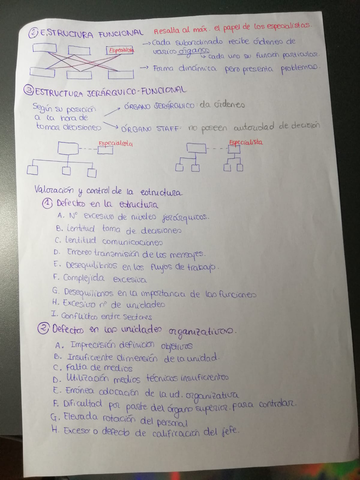 ② ESTRUCTURA FUNCIONAL Resalta al máx. el papel de los especialistas.
Especialista
→ Cada subordinado recibe órdenes de
varios órganos
↳ cada uno su función particular.
→ Forma dinámica para presentar problemas.
③ ESTRUCTURA JERÁRQUICO-FUNCIONAL
Según su posición
a la hora de
tomar decisiones
→ ÓRGANO JERÁRQUICO da órdenes
→ ÓRGANO STAFF no poseen autoridad de decisión
Especialista
Especialista
Valoración y control de la estructura
① Defectos en la estructura
A. Nº excesivo de niveles jerárquicos.
B. Lentitud toma de decisiones
C. Lentitud comunicaciones
D. Errores transmisión de los mensajes.
E. Desequilibrios en los flujos de trabajo.
F. Complejidad excesiva
G. Desequilibrios en la importancia de las funciones
H. Excesivo nº de unidades
I. Conflictos entre sectores
② Defectos en las unidades organizativas.
A. Imprecisión definición objetivos
B. Insuficiente dimensión de la unidad.
C. Falta de medios
D. Utilización medios técnicos insuficientes
E. Errónea colocación de la ud. organizativa
F. Dificultad por parte del órgano superior para controlar.
G. Elevada rotación del personal
H. Exceso o defecto de calificación del jefe.